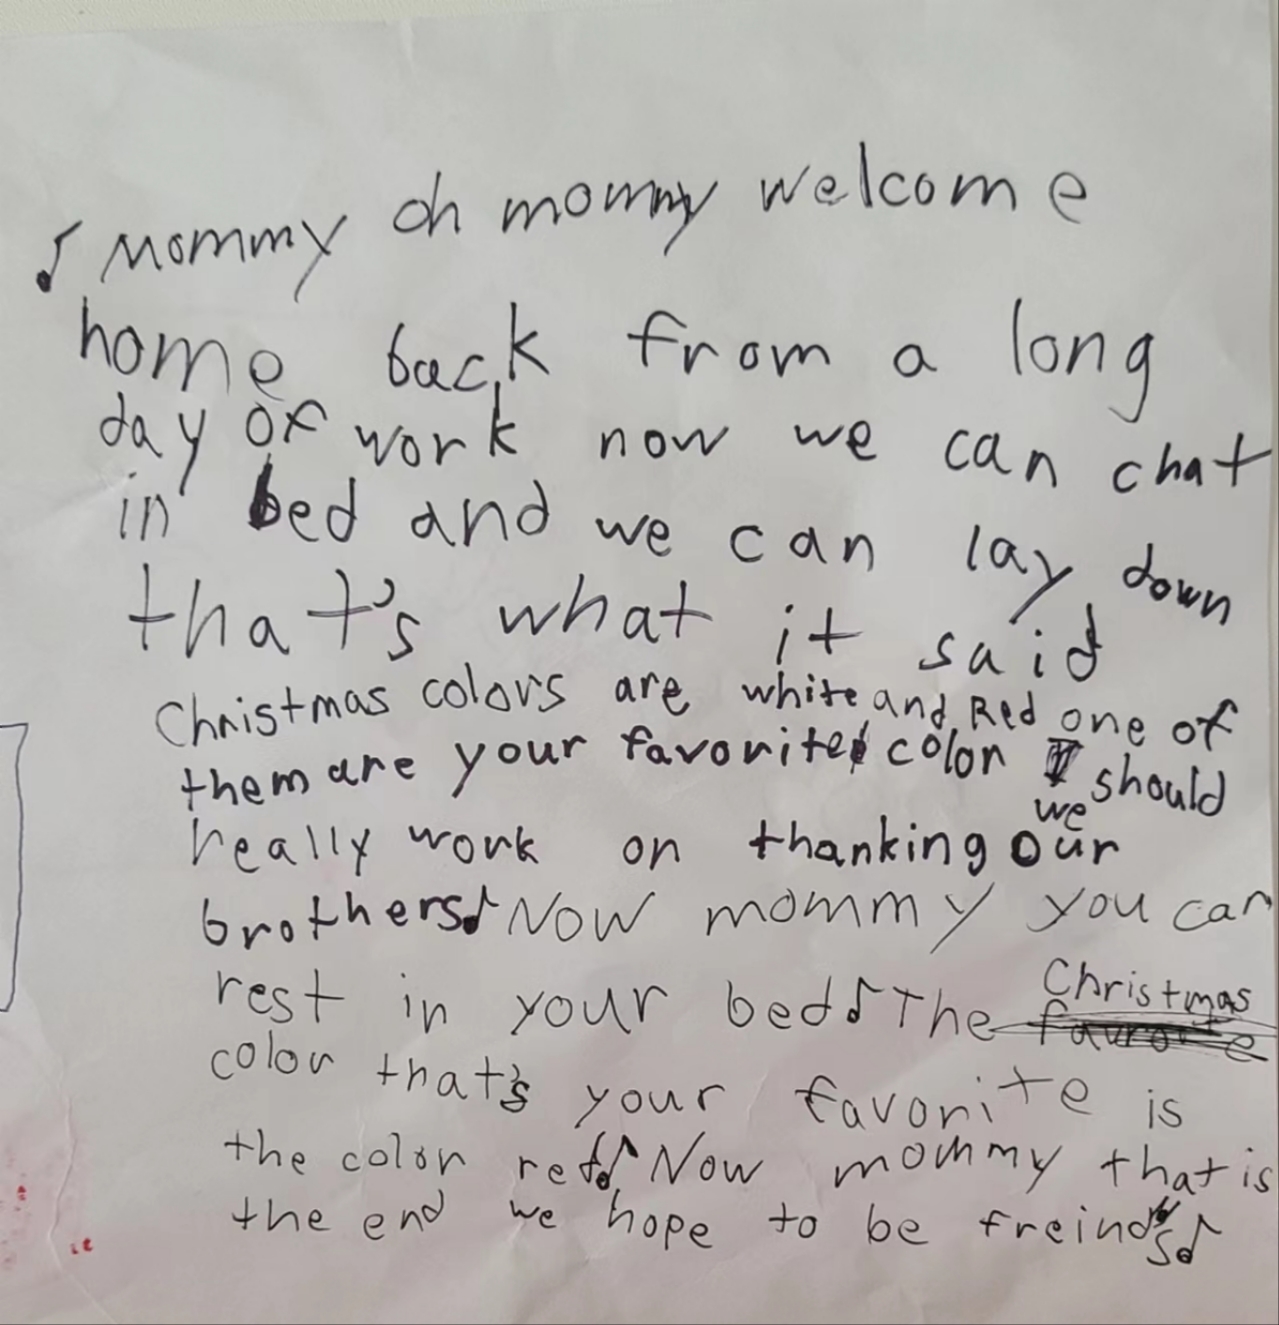 ♪ Mommy oh mommy welcome
home back from a long
day of work now we can chat
in bed and we can lay down
that's what it said
Christmas colors are white and Red one of
them are your favorite color we should
really work on thanking our
brothers♪ Now mommy you can
rest in your bed♪ The Christmas
color that's your favorite is
the color red♪ Now mommy that is
the end we hope to be freinds♪